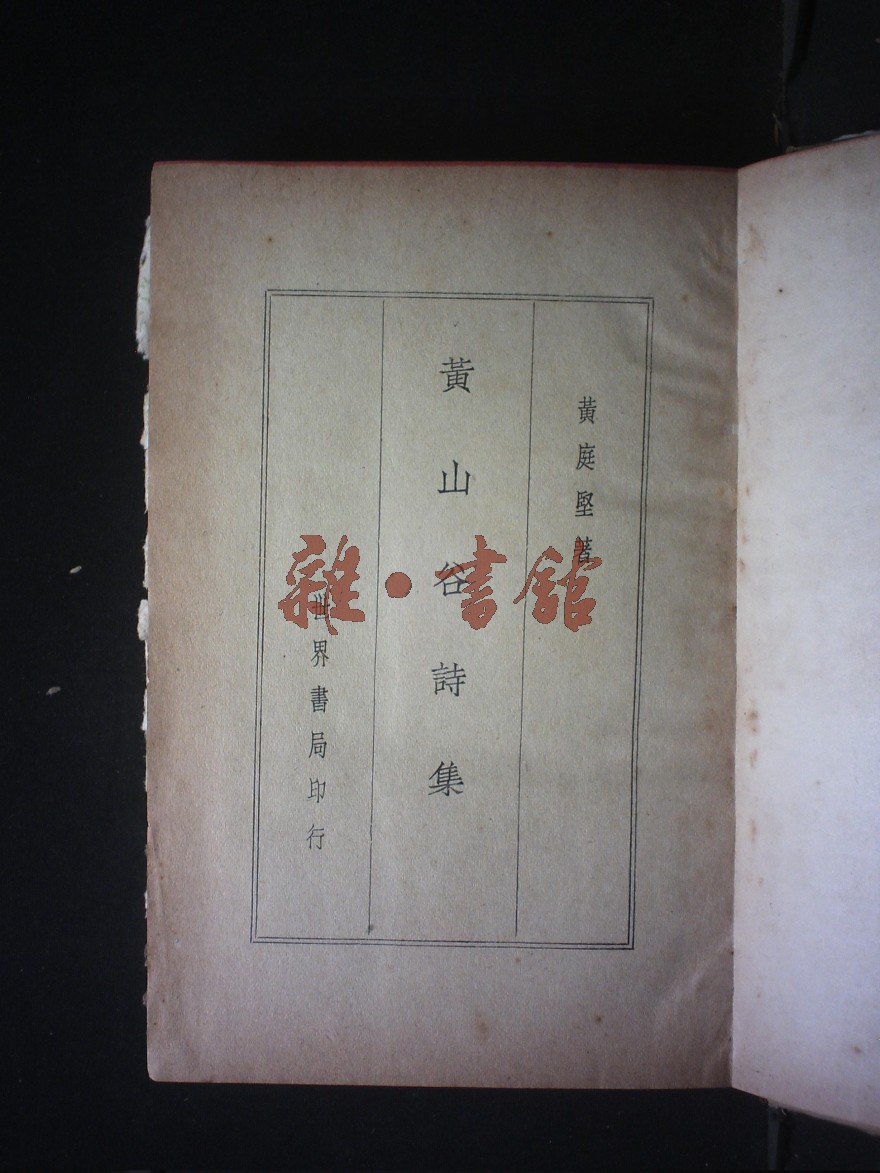 黃庭堅著
黃山谷詩集
世界書局印行
雜·書館